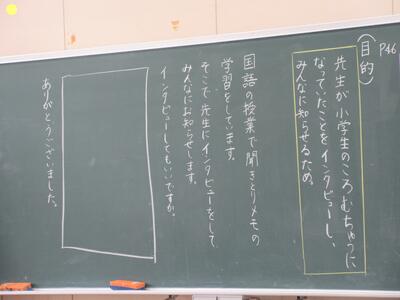 P46
(目的)
先生が小学生のころむちゅうに
なっていたことをインタビューし、
みんなに知らせるため。
国語の授業で聞きとりメモの
学習をしています。
そこで先生にインタビューをして
みんなにお知らせします。
インタビューしてもいいですか。
ありがとうございました。